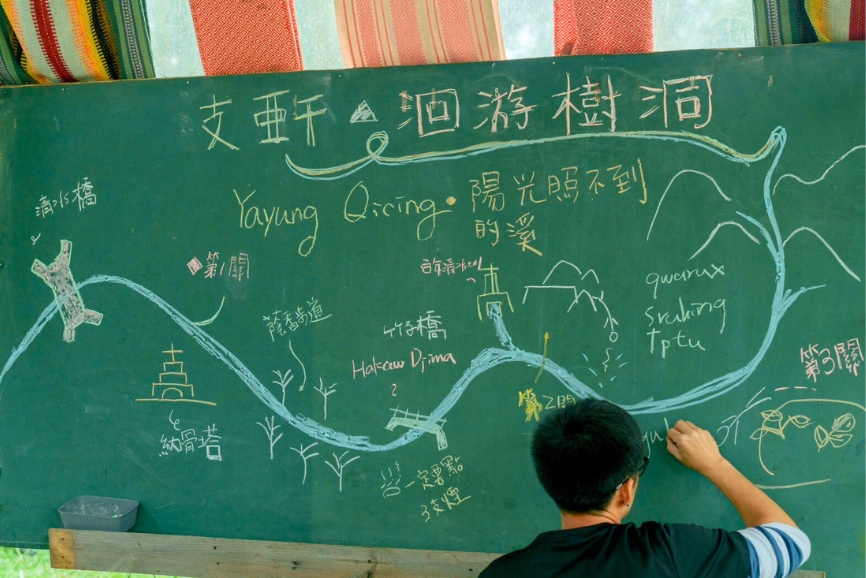 支亜干▲洄游樹洞
Yayung Qicing・陽光照不到
的溪
清水橋
第1關
百年清水
竹子橋
Hakaw Djima
2
qwarux
sruhing
tptu
第3關
第2關
納骨塔
一定要點
3支煙